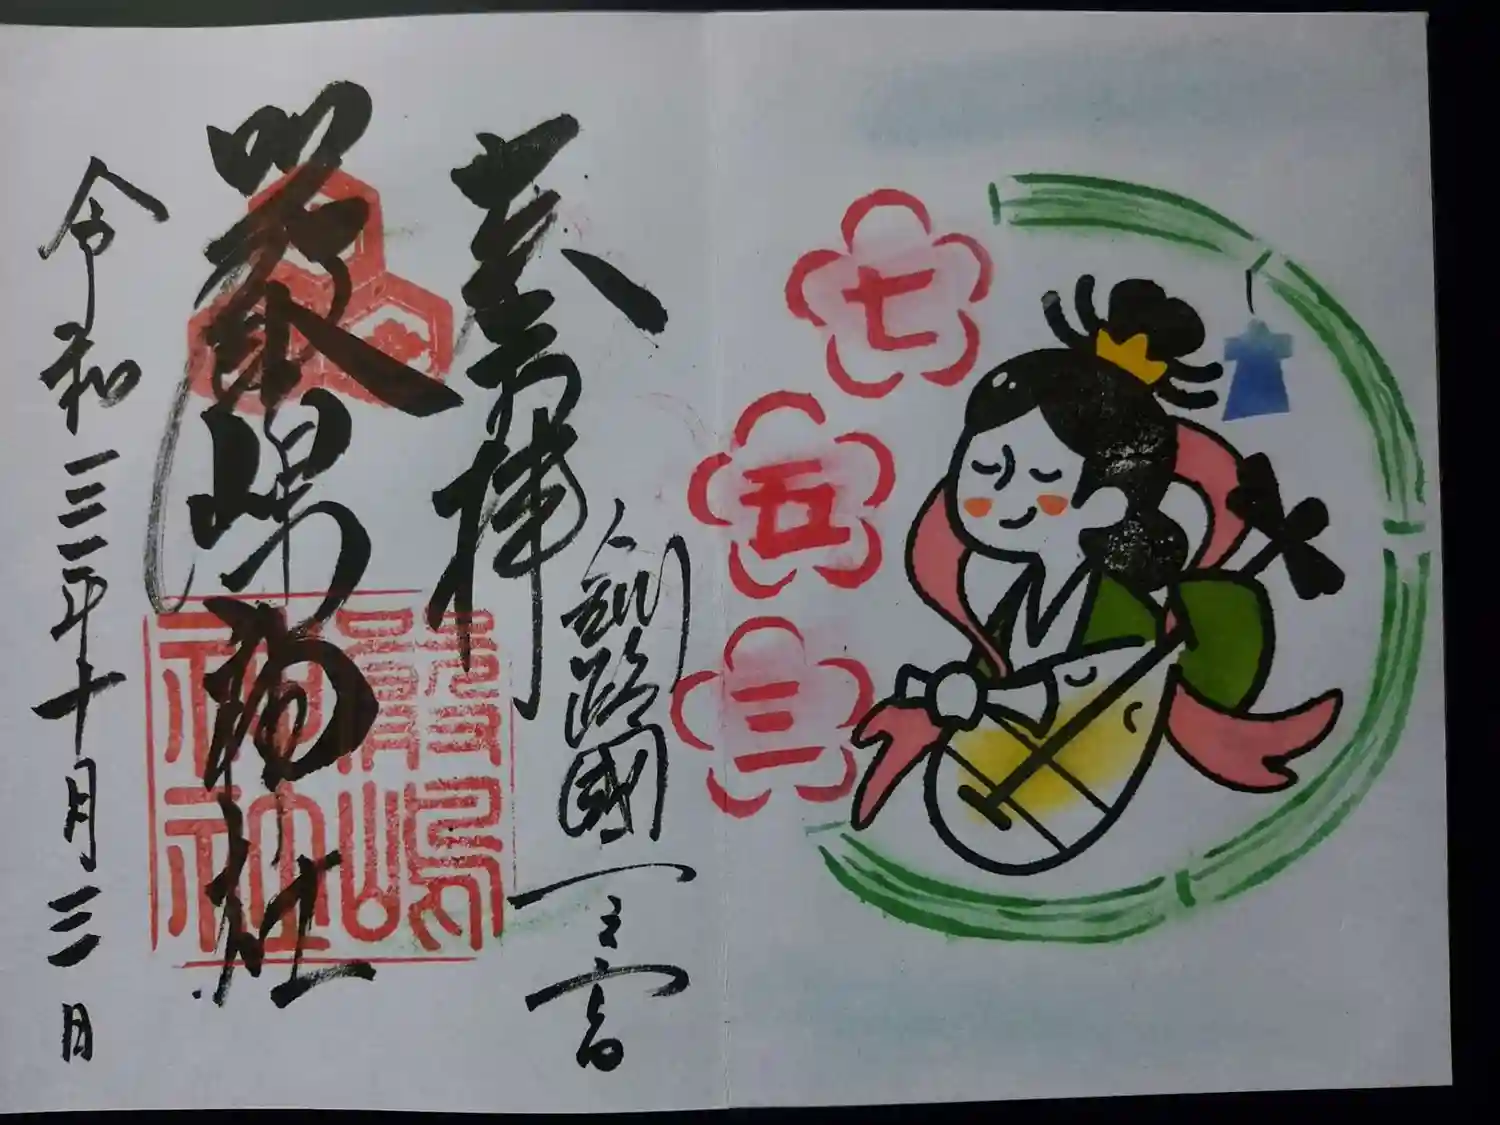 七五三
奉拝
釧路國一之宮
嚴嶋神社
嚴嶋神社
令和三年十月三日